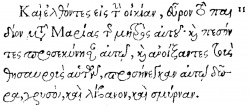 Καὶ ἐλθόντες εἰς τὴν οἰκίαν, εὗρον τὸ παι- 11
δίον μετὰ Μαρίας τῆς μητρὸς αὐτοῦ· καὶ πεσόν-
τες προσεκύνησαν αὐτῷ, καὶ ἀνοίξαντες τοὺς
θησαυροὺς αὐτῶν, προσήνεγκαν αὐτῷ δῶ-
ρα, χρυσὸν, καὶ λίβανον, καὶ σμύρναν.